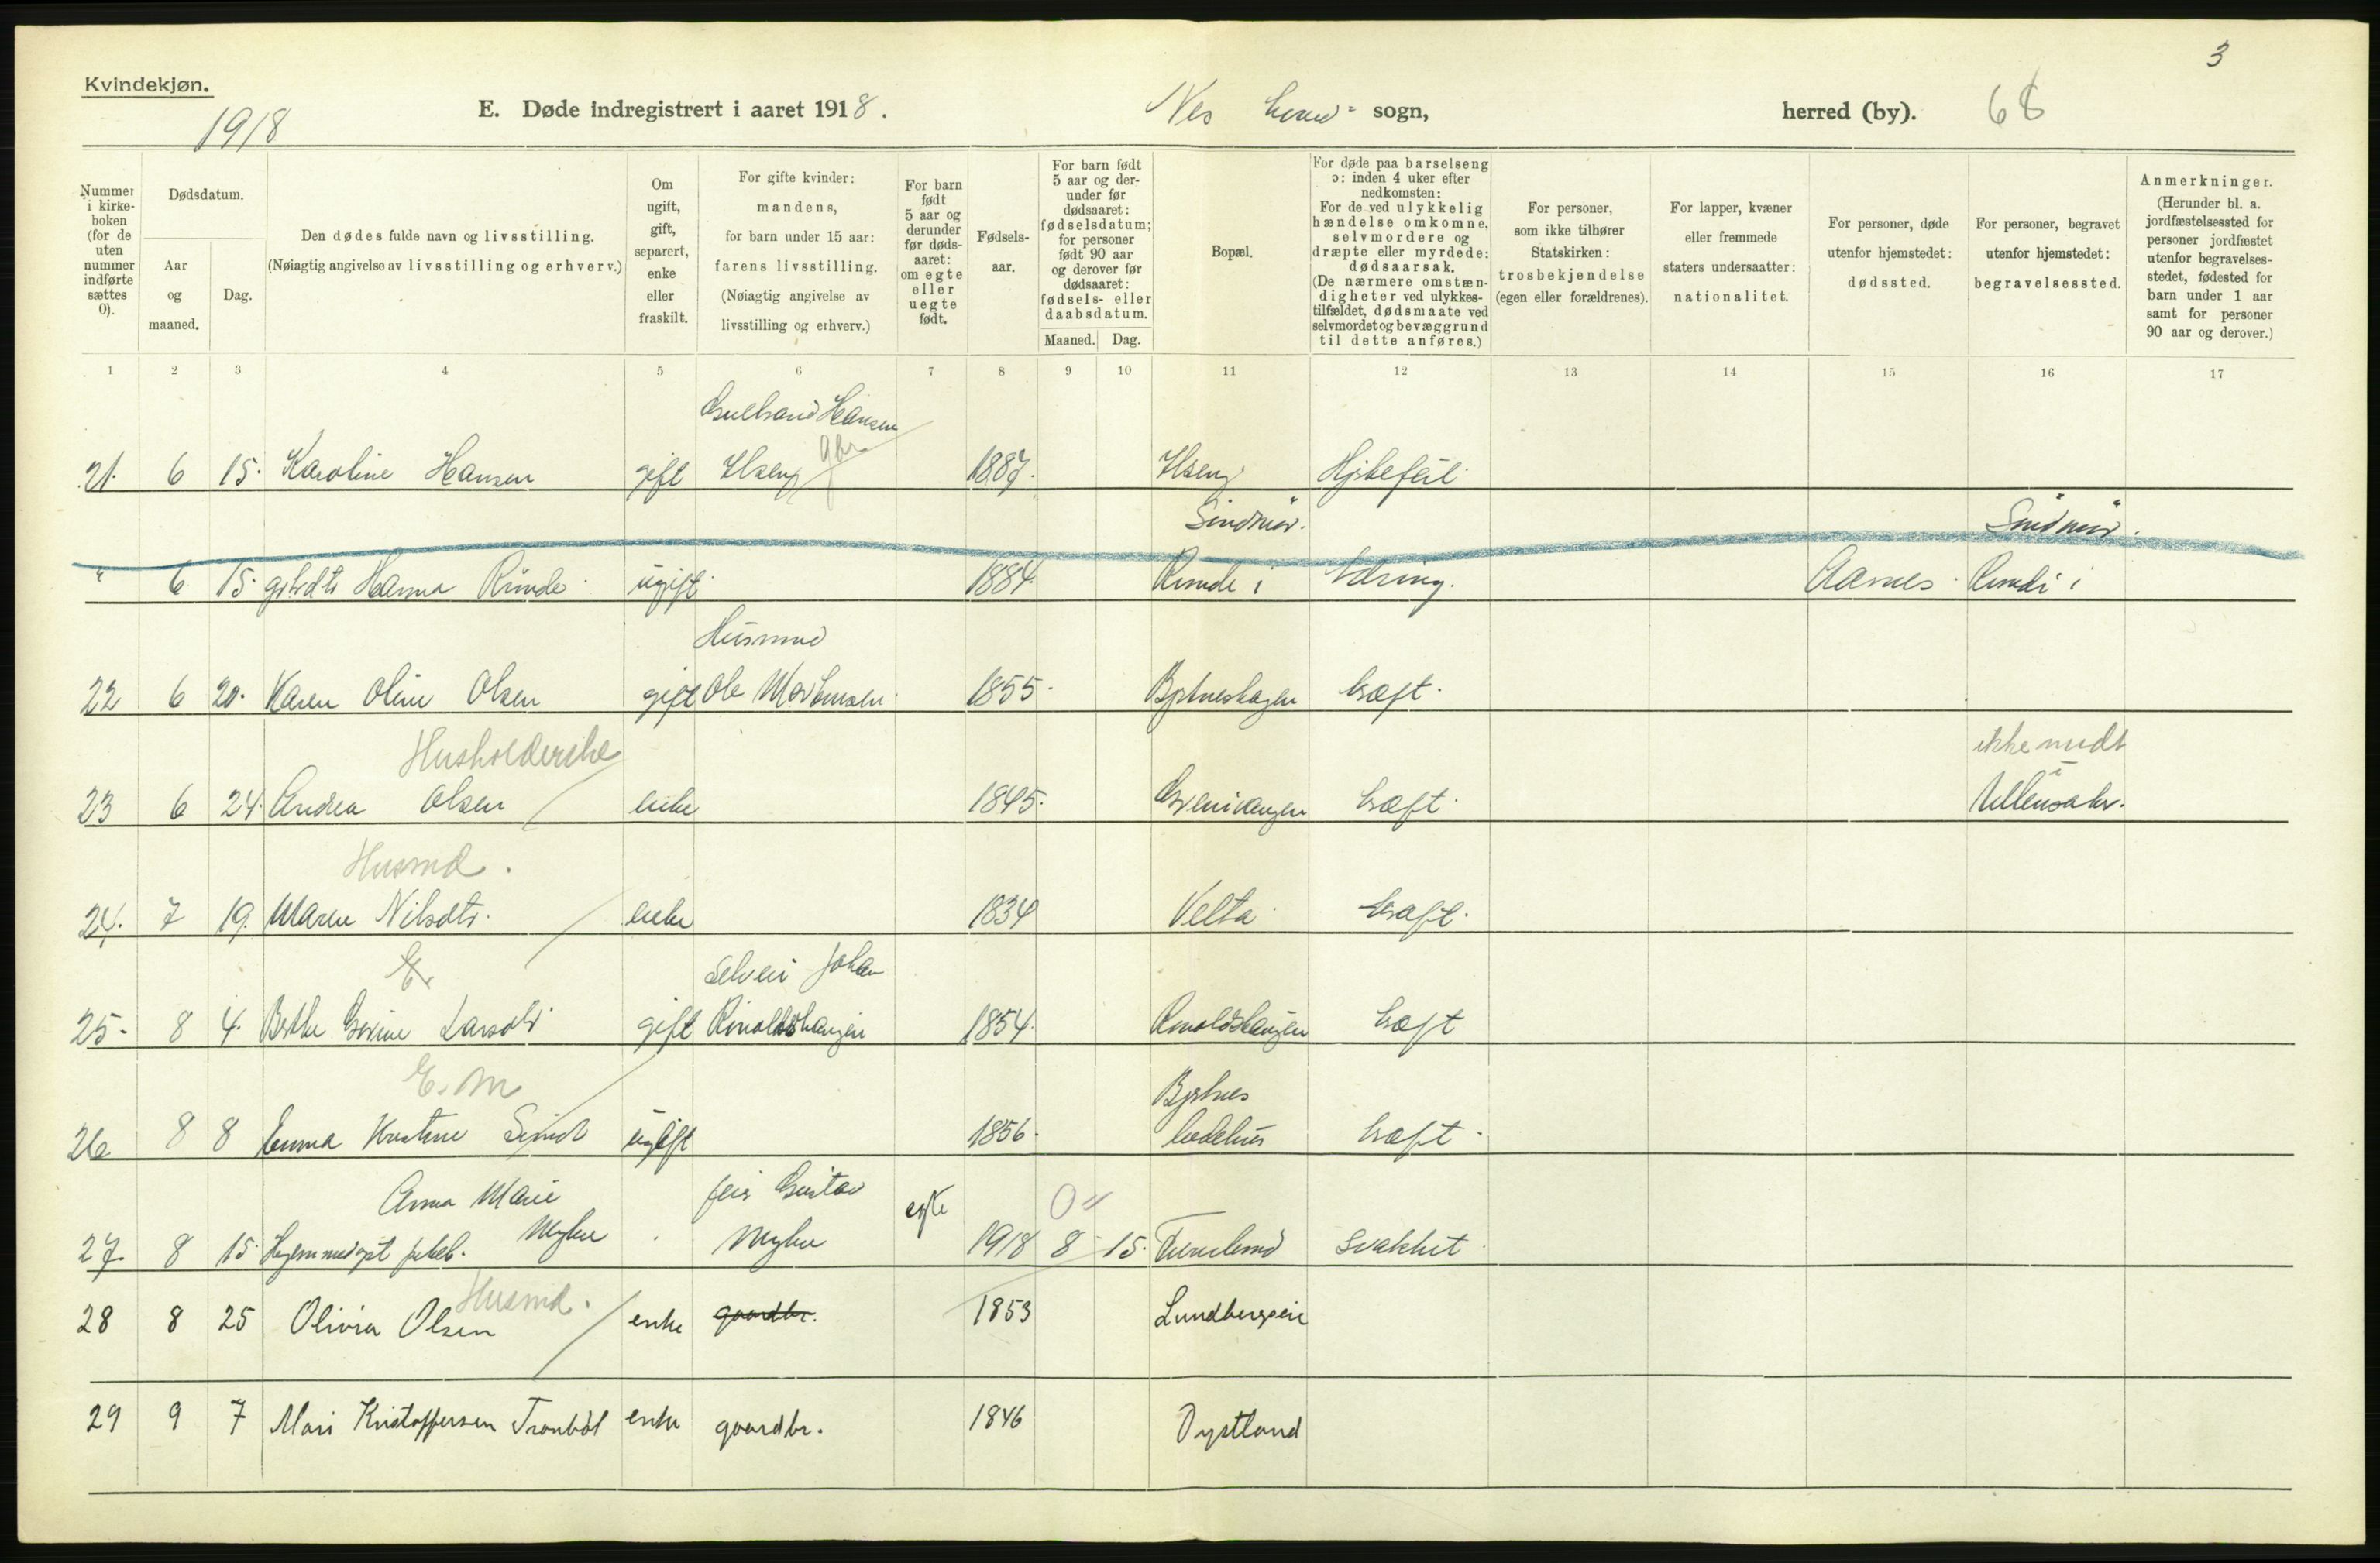 3
Kvindekjøn.
1918
E. Døde indregistrert i aaret 1918.
Nes hoved= sogn,
herred (by). 68
Nummer i kirkeboken (for de uten nummer indførte sættes 0).
Dødsdatum.
Aar og maaned.
Dag.
Den dødes fulde navn og livsstilling.
(Nøiagtig angivelse av livsstilling og erhverv.)
Om ugift, gift, separert, enke eller fraskilt.
For gifte kvinder: mandens, for barn under 15 aar: farens livsstilling.
(Nøiagtig angivelse av livsstilling og erhverv.)
For barn født 5 aar og derunder før dødsaaret: om egte eller uegte født.
Fødselsaar.
For barn født 5 aar og derunder før dødsaaret: fødselsdatum; for personer født 90 aar og derover før dødsaaret: fødsels- eller daabsdatum.
Maaned. Dag.
Bopæl.
For døde paa barselseng ɔ: inden 4 uker efter nedkomsten:
For de ved ulykkelig hændelse omkomne, selvmordere og dræpte eller myrdede: dødsaarsak.
(De nærmere omstændigheter ved ulykkestilfældet, dødsmaate ved selvmordet og bevæggrund til dette anføres.)
For personer, som ikke tilhører Statskirken: trosbekjendelse (egen eller forældrenes).
For lapper, kvæner eller fremmede staters undersaatter: nationalitet.
For personer, døde utenfor hjemstedet: dødssted.
For personer, begravet utenfor hjemstedet: begravelsessted.
Anmerkninger.
(Herunder bl. a. jordfæstelsessted for personer jordfæstet utenfor begravelsesstedet, fødested for barn under 1 aar samt for personer 90 aar og derover.)
1 2 3 4 5 6 7 8 9 10 11 12 13 14 15 16 17
Gulbrand Hansen
21. 6 15. Karoline Hansen gift Ilseng 1887. Ilseng Hjertefeil
Søndmør. Søndmør.
" 6 15. Hanna Runde ugift. 1884. Runde i Tæring. Aarnes. Runde i
Husmand
22 6 20. Karen Oline Olsen gift Ole Mortensen 1855. kræft.
Husholderske ikke meldt
23 6 24. Andrea Olsen enke 1845. kræft. Ullensaker.
Husmd.
24. 7 19. Maren Nilsdtr. enke 1834 Velta kræft.
E.
Selveier Johan
25. 8 4. Berthe Larsdtr gift 1854. kræft
E. M
Bjertnes
26 8 8 Emma Kristine ugift 1856. kræft.
Anna Marie Gustav
27 8 15. Hjemmedøpt Myhre Myhre egte 1918 8 15. svakhet.
0"
Husmd.
28 8 25 Olivia Olsen enke gaardbr. 1853 Lundbergseie
29 9 7 Mari Kristoffersen Tronbøl enke gaardbr. 1846 Dystland